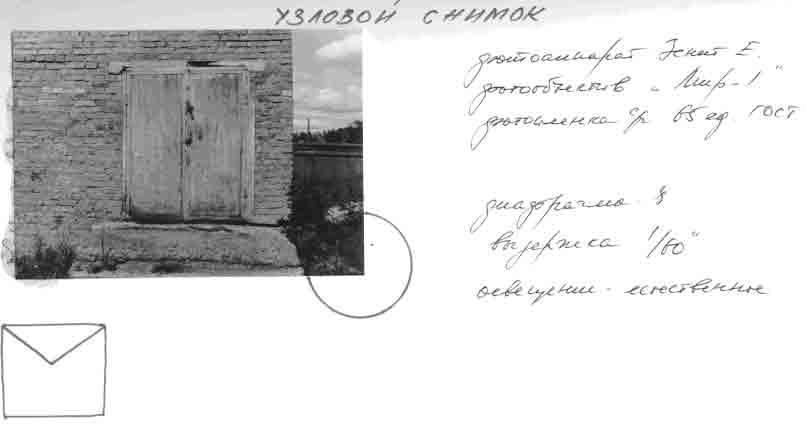 УЗЛОВОЙ СНИМОК
фотоаппарат Зенит Е.
фотообъектив „Мир-1"
фотопленка ч/б 65 ед. ГОСТ
диафрагма - 8
выдержка 1/60"
освещение - естественное